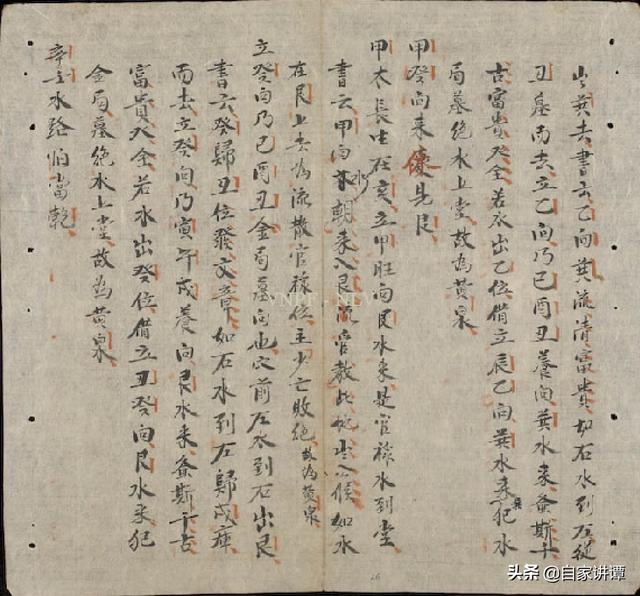 出巽去書云乙向巽流清富貴如右水到左從
丑墓而去立乙向乃巳酉丑養向巽水来螽斯千
古富貴双全若水出乙位借立辰乙向巽水来犯水
局墓絶水上堂故為黄泉
甲癸向来憂見艮
甲木長生在亥立甲旺向艮水来是官禄水到堂
書云甲向水朝来入艮流官教此地出公候如水
在艮上去為流散官禄位主少亡敗絶故為黄泉
立癸向乃巳酉丑金局墓向也穴前左水到右出艮
書云癸歸丑位發文章如右水到左歸戌庫
而去立癸向乃寅午戌養向艮水来螽斯千古
富貴双全若水出癸位借立丑癸向艮水来犯
金局墓絶水上堂故為黄泉
辛壬水路怕當乾
VNPF NLV
头条 @自家讲谭